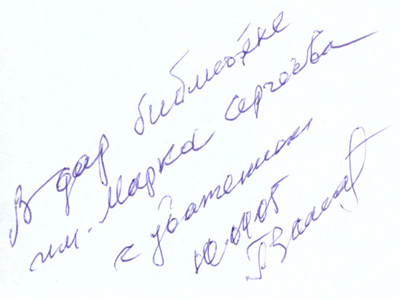 В дар библиотеке
им. Марка Сергеева
с уважением